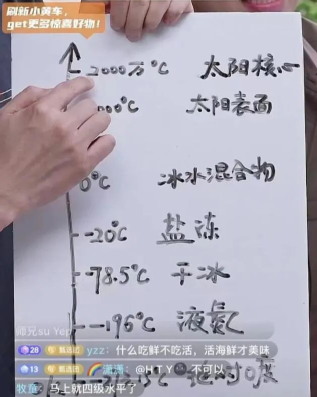 刷新小黄车，
get更多惊喜好物！
2000万℃ 太阳核心
00℃ 太阳表面
0℃ 冰水混合物
-20℃ 盐冻
-78.5℃ 干冰
-196℃ 液氮
师兄su Yep
28 甄选团 yzz：什么吃鲜不吃活，活海鲜才美味
13 甄选团 潇潇：@HTY 不可以
牧鱼：马上就四级水平了
5℃ 绝对0度